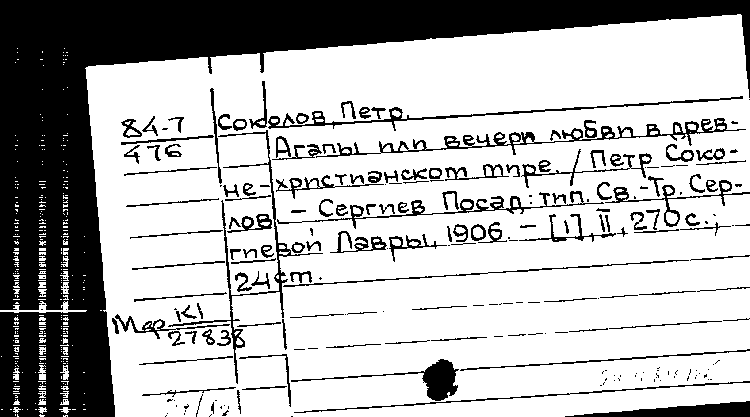 84-7
476
Соколов, Петр.
Агапы или вечери любви в древ-
не-христианском мире. / Петр Соко-
лов. – Сергиев Посад: тип. Св.-Тр. Сер-
гиевой Лавры, 1906. – [1], II, 270 с.;
24 см.
Мар К1
27838